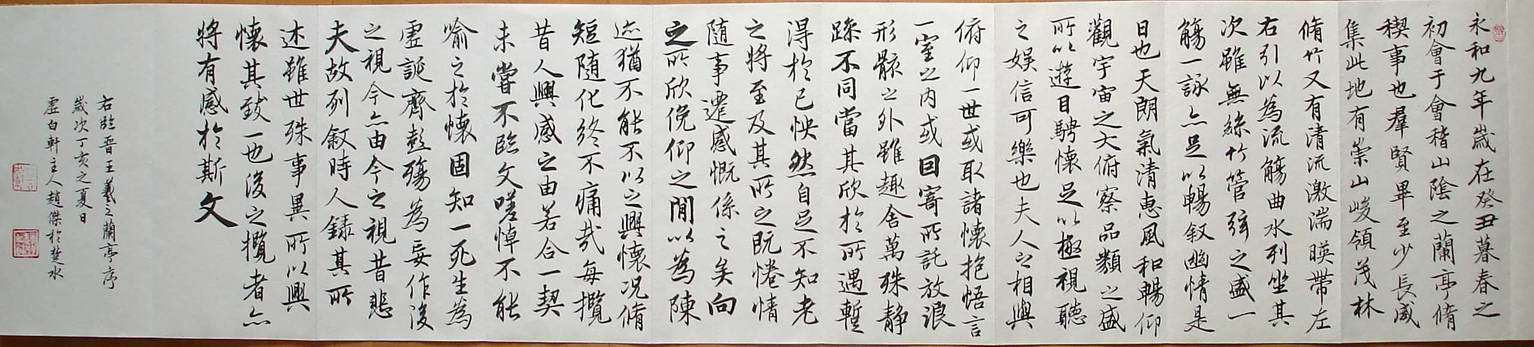 永和九年歲在癸丑暮春之
初會于會稽山陰之蘭亭脩
稧事也羣賢畢至少長咸
集此地有崇山峻領茂林
脩竹又有清流激湍暎帶左
右引以為流觴曲水列坐其
次雖無絲竹管弦之盛一
觴一詠亦足以暢叙幽情是
日也天朗氣清惠風和暢仰
觀宇宙之大俯察品類之盛
所以遊目騁懷足以極視聽
之娛信可樂也夫人之相與
俯仰一世或取諸懷抱悟言
一室之內或因寄所託放浪
形骸之外雖趣舍萬殊静
躁不同當其欣於所遇蹔
得於己怏然自足不知老
之將至及其所之既惓情
隨事遷感慨係之矣向
之所欣俛仰之間以為陳
迹猶不能不以之興懷況脩
短隨化終不痛哉每攬
昔人興感之由若合一契
未嘗不臨文嗟悼不能
喻之於懷固知一死生為
虛誕齊彭殤為妄作後
之視今亦由今之視昔悲
夫故列叙時人錄其所
述雖世殊事異所以興
懷其致一也後之攬者亦
將有感於斯文
右臨晉王羲之蘭亭序
歲次丁亥之夏日
虛白軒主人趙傑於楚水